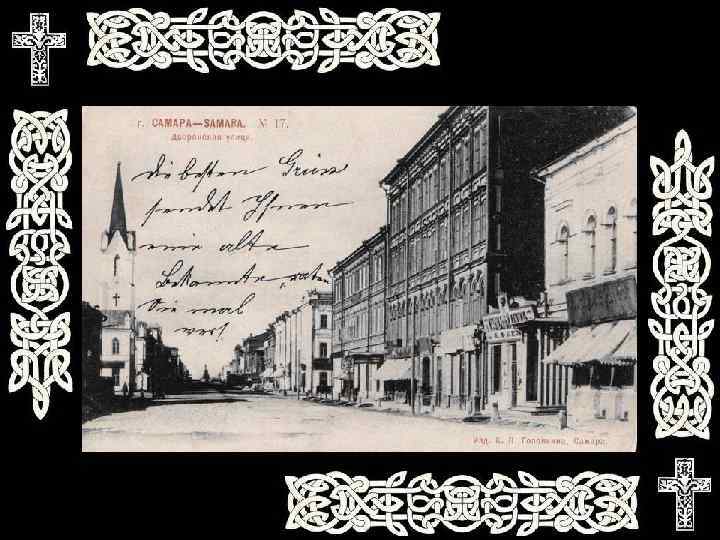 г. САМАРА—SAMARA. № 17.
Дворянская улица.
Die besten Grüsse
sendet Ihnen
eine alte
Bekannte, raten
Sie mal
wer!
Изд. Е. Л. Головкина, Самара.